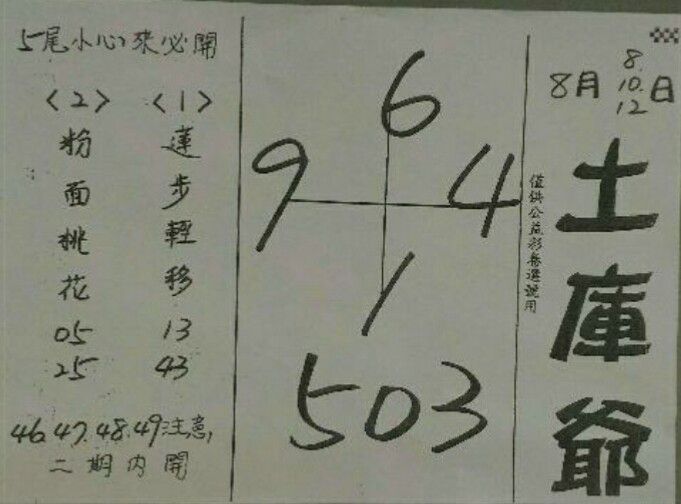 8月8.10.12日
土庫爺
僅供公益彩卷選號用
6
9 4
1
503
5尾小心來必開
<1>
蓮步輕移
13
43
<2>
粉面桃花
05
25
46.47.48.49注意,
二期內開